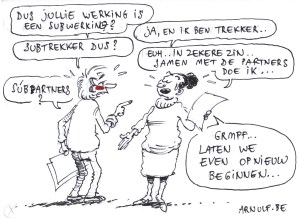 DUS JULLIE WERKING IS
EEN SUBWERKING?
JA, EN IK BEN TREKKER..
SUBTREKKER DUS?
EUH.. IN ZEKERE ZIN..
SAMEN MET DE PARTNERS
DOE IK...
SUBPARTNERS
?
GRMPF...
LATEN WE
EVEN OPNIEUW
BEGINNEN...
ARNULF.BE